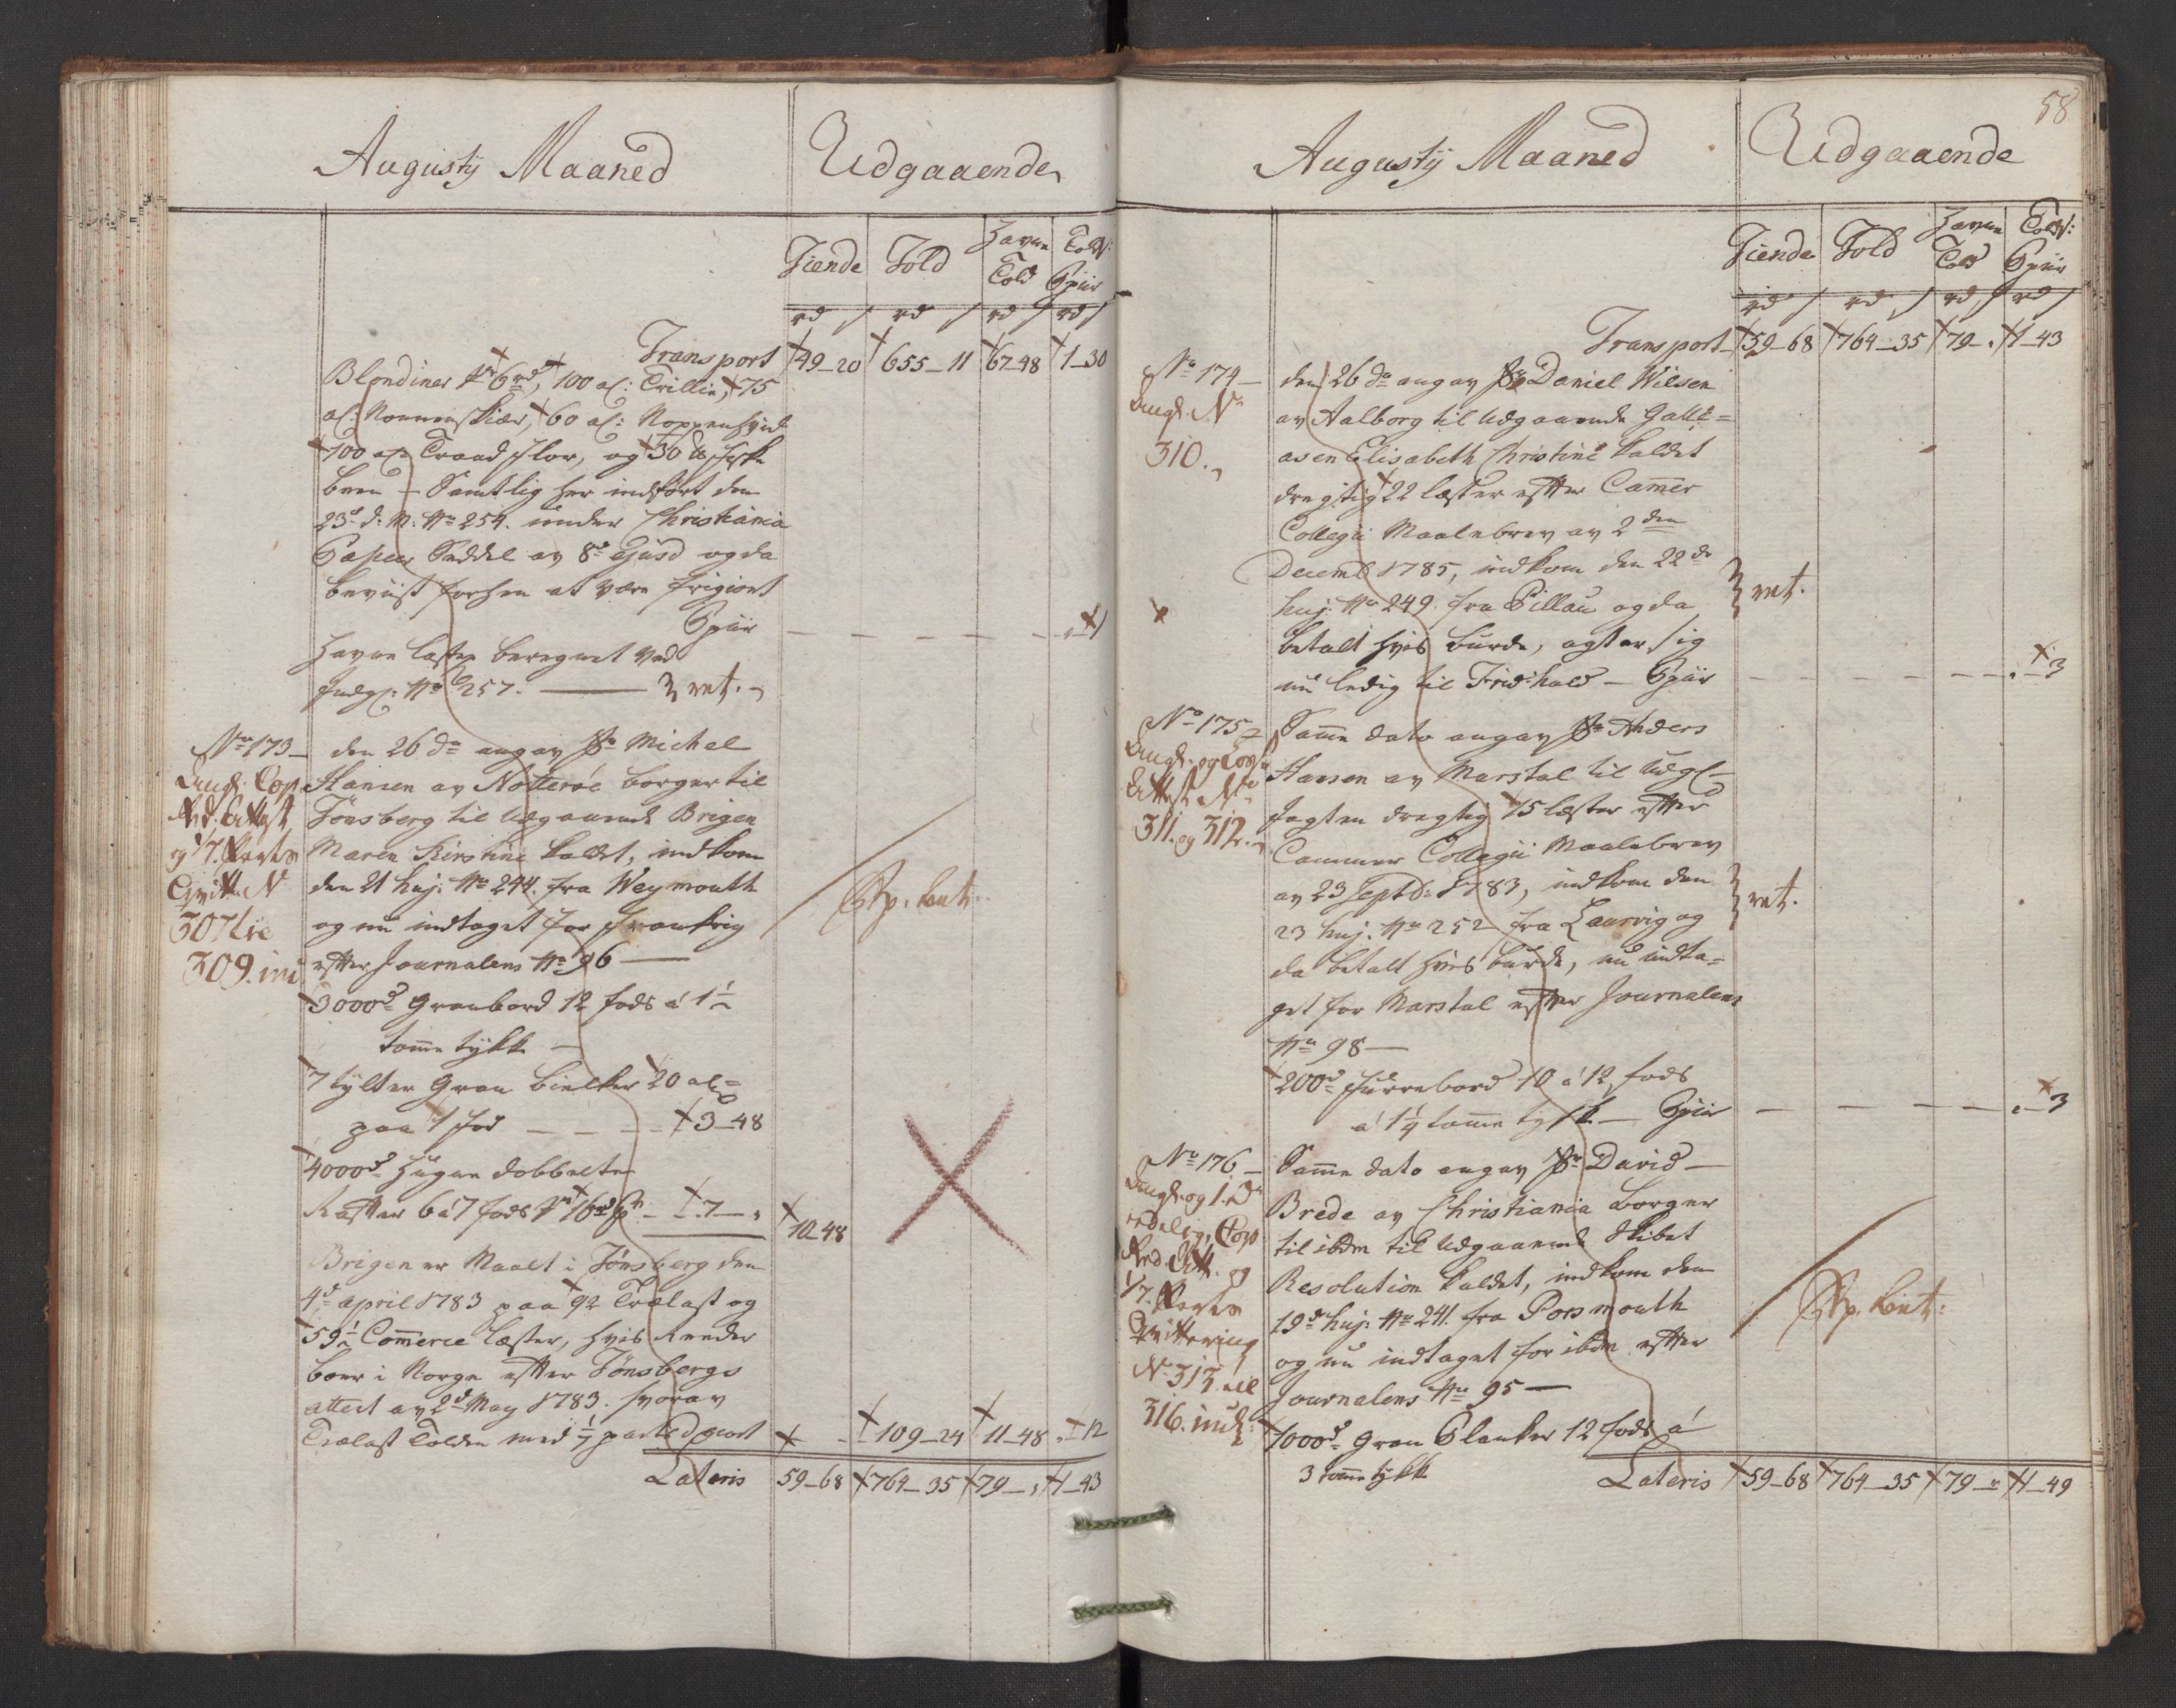 Augusty Maaned
Udgaaende
Tiende
Told
Havne Told
Told: Spiir
rd s rd s rd s rd s
Transport 49_20 655_11 67_48 1_30
Blondiner 6 rd, 100 al: Trillie, 75
al: Nonnenskiær, 60 al: Noppenshyed
100 al: Traad flor, og 30 ℔ fiske
been – Samtlig her indført den
23d. d: M: No 254. under Christiania
Passeer Seddel av 8d Ejusd og da
beviist forhen at være frigiort
Spiir „_1
Havne lasten beregnet ved
Indg: No 257. ret.
No 173_
Angl. Cop.
Red. Attest
og 1/7. Parts
Qvitt. N
307 til
309. incl
den 26 do angav Sr Michel
Hansen av Nötteröe borger til
Tönsberg til Udgaaende Brigen
Maren Kirstine kaldt, indkom
den 21 huj: No 244. fra Weymouth
og nu indtaget for frankrig
efter Journalens No 96 —
Exp. beat.
3000d Granbord 12 fods á 1½
tomme tykk
7 tylter Gran bielker 20 al:
paa 1 fod _ _ _ 3_48
4000d Hugne dobbelte
Rafter 6 á 7 fods 16d _ 7_„ 10_48
Brigen er Maalt i Tönsberg den
4d april 1783 paa 92 Trælast og
59½ Commerce læster, hvis Reeder
boer i Norge efter Tönsbergs
attest av 2d May 1783. hvorav
Trælast Tolden med 1/7 part _ 109_24 11_48 „_12
Lateris 59_68 764_35 79_„ 1_43
58
Augusty Maaned
Udgaaende
Tiende
Told
Havne Told
Told: Spiir
rd s rd s rd s rd s
Transport 59_68 764_35 79_„ 1_43
No 174_
Angl. No
310.
den 26 do angav Sr Daniel Wilsen
av Aalborg til Udgaaende Galle=
asen Elisabeth Christine kaldet
dregtig 22 læster efter Camer
Collegii Maalebrev av 2den
Decemb 1785, indkom den 22de
huj: No 249. fra Pillau og da
ret.
betalt hvis burde, agter sig
nu ledig til Fridhald – Spiir „_3
No 175_
Angl. og Cop.
Attest No
311. og 312.
Samme dato angav Sr Anders
Hansen av Marstal til Udg:
Jagten dregtig 15 læster efter
Cammer Collegii Maalebrev
av 23 Septb: 1783, indkom den
23 huj: No 252 fra Laurvig og
ret.
da betalt hvis burde, nu indta=
get for Marstal efter Journalens
No 98 —
200d furrebord 10 á 12 fods
á 1¼ tomme tyk – Spiir „_3
No 176_
Angl. og
Cop
Red. Att. og
1/7. Parts
Qvittering
No 313 til
316. incl:
Samme dato angav Sr David
Brede av Christiania borger
til ibdm til Udgaaende Skibet
Resolution kaldet, indkom den
19d huj: No 241. fra Porsmouth
og nu indtaget for ibdm efter
Journalens No 95 —
Exp. beat:
1000d Gran Planker 12 fods á
3 tomme tykk
Lateris 59_68 764_35 79_„ 1_49